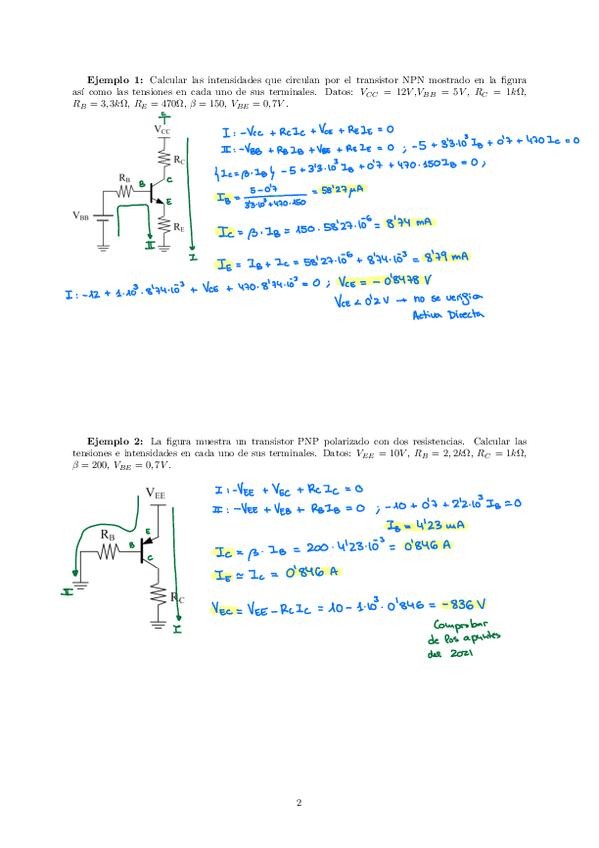 Ejemplo 1: Calcular las intensidades que circulan por el transistor NPN mostrado en la figura
así como las tensiones en cada uno de sus terminales. Datos: V_CC = 12V, V_BB = 5V, R_C = 1kΩ,
R_B = 3,3kΩ, R_E = 470Ω, β = 150, V_BE = 0,7V.
V_CC
R_C
R_B
B
C
E
V_BB
R_E
II
I
I: -Vcc + RcIc + VCE + REIE = 0
II: -VBB + RBIB + VBE + REIE = 0 ; -5 + 3'3·10³ IB + 0'7 + 470 Ic = 0
{Ic = β·IB} -5 + 3'3·10³ IB + 0'7 + 470·150 IB = 0 ;
IB = (5-0'7)/(3'3·10³+470·150) = 58'27 μA
Ic = β·IB = 150·58'27·10⁻⁶ = 8'74 mA
IE = IB + Ic = 58'27·10⁻⁶ + 8'74·10⁻³ = 8'79 mA
I: -12 + 1·10³·8'74·10⁻³ + VCE + 470·8'74·10⁻³ = 0 ; VCE = -0'8478 V
VCE < 0'2 V → no se verifica
Activa Directa
Ejemplo 2: La figura muestra un transistor PNP polarizado con dos resistencias. Calcular las
tensiones e intensidades en cada uno de sus terminales. Datos: V_EE = 10V, R_B = 2,2kΩ, R_C = 1kΩ,
β = 200, V_BE = 0,7V.
V_EE
R_B
E
B
C
R_C
II
I
I: -VEE + VEC + RcIc = 0
II: -VEE + VEB + RBIB = 0 ; -10 + 0'7 + 2'2·10³ IB = 0
IB = 4'23 mA
Ic = β·IB = 200·4'23·10⁻³ = 0'846 A
IE ≃ Ic = 0'846 A
VEC = VEE - RcIc = 10 - 1·10³·0'846 = -836 V
Comprobar
de los apuntes
del 2021
2